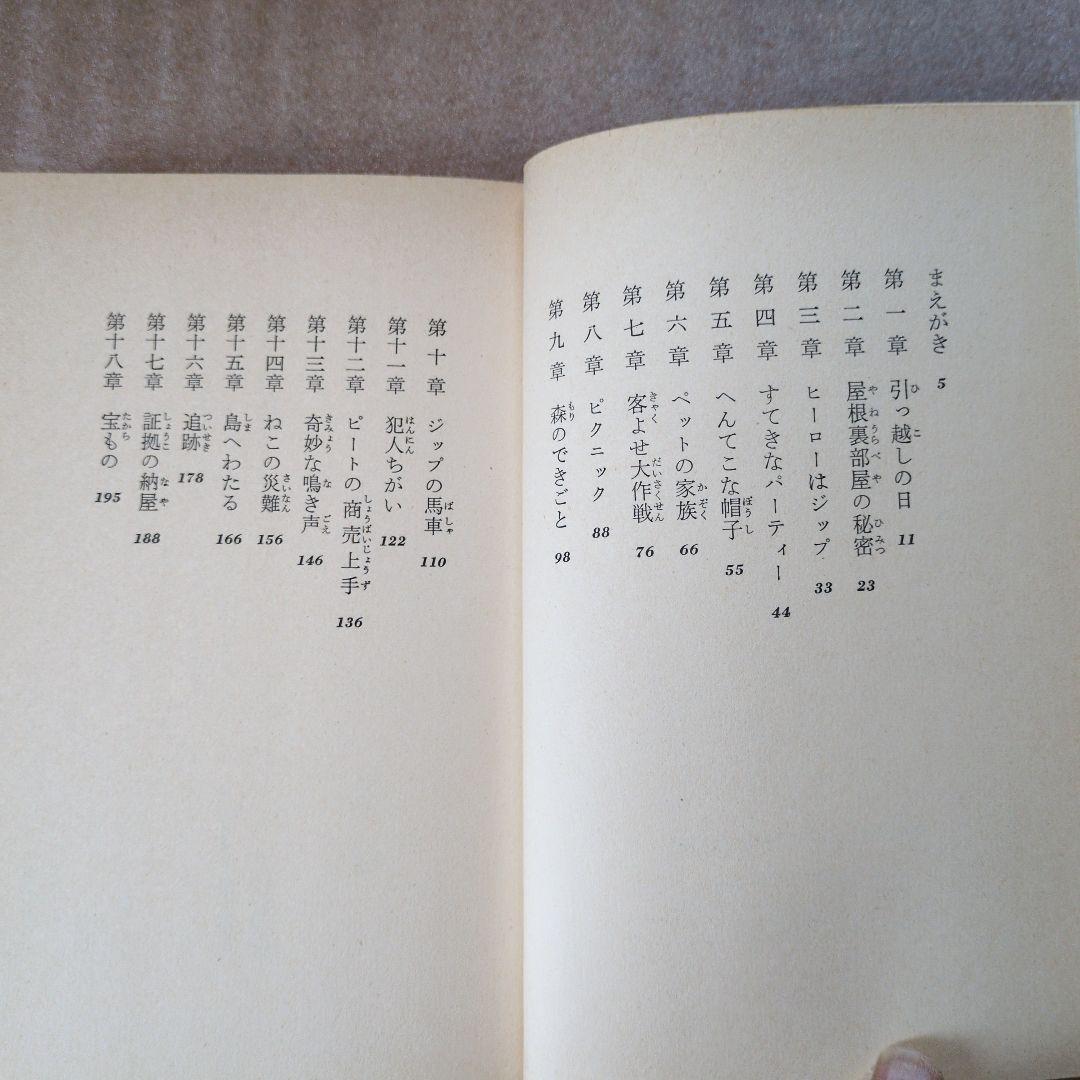 まえがき 5
第一章 引っ越しの日 11
第二章 屋根裏部屋の秘密 23
第三章 ヒーローはジップ 33
第四章 すてきなパーティー 44
第五章 へんてこな帽子 55
第六章 ペットの家族 66
第七章 客よせ大作戦 76
第八章 ピクニック 88
第九章 森のできごと 98
第十章 ジップの馬車 110
第十一章 犯人ちがい 122
第十二章 ピートの商売上手 136
第十三章 奇妙な鳴き声 146
第十四章 ねこの災難 156
第十五章 島へわたる 166
第十六章 追跡 178
第十七章 証拠の納屋 188
第十八章 宝もの 195